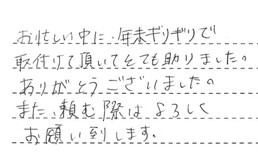 お忙しい中に、年末ギリギリで
取付けて頂いてとても助りました。
ありがとうございました。
また、頼む際はよろしく
お願い到します。